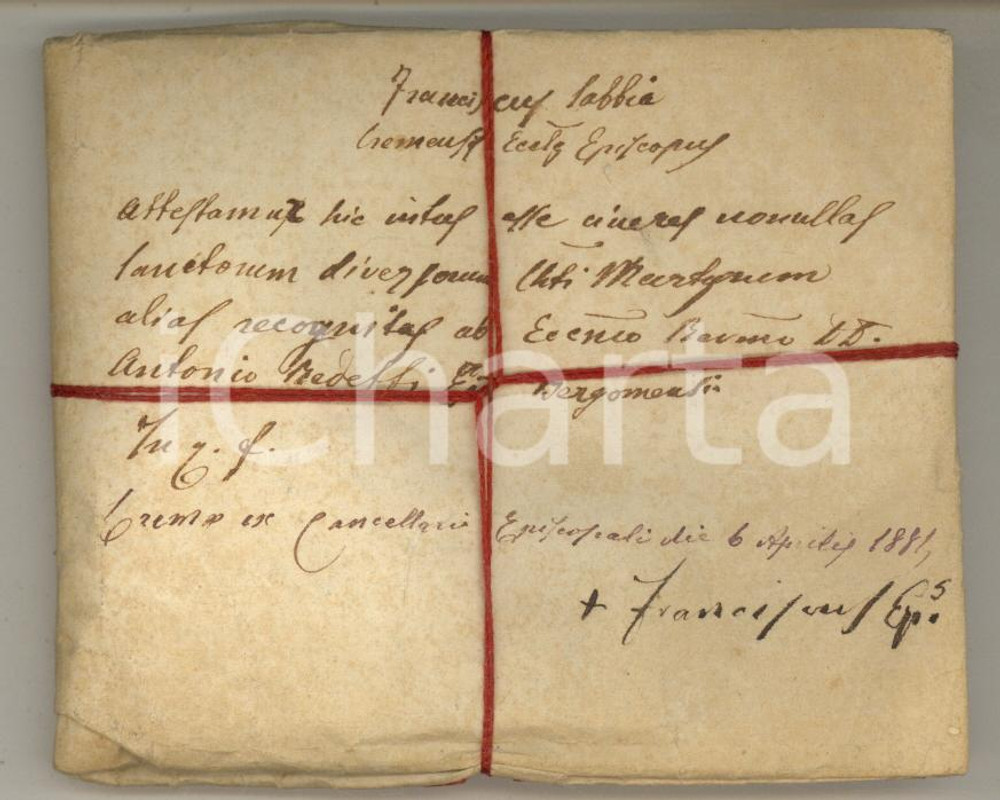 Franciscus Sabbia
Cremensis Ecclę Episcopus
Attestamur hic intus esse cineres nonullas
Sanctorum diversorum Chti Martyrum
alias recognitas ab Eccmo Revmo DD.
Antonio Redetti Ep Bergomensi
In q. f.
Crema ex Cancellaria Episcopali die 6 Aprilis 1881,
+ Franciscus Ep.s
iCharta